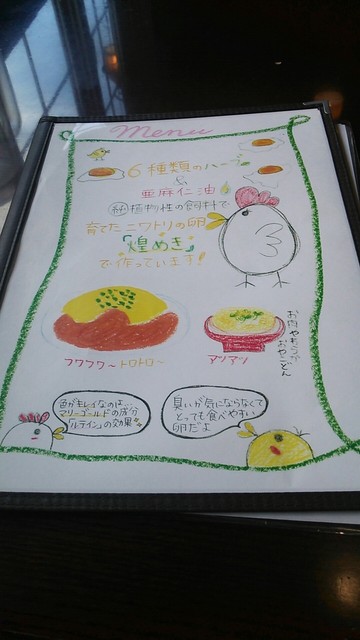 Menu
6種類のハーブ
&
亜麻仁油
㊙植物性の飼料で
育てたニワトリの卵
「煌めき」
で作っています!
フワフワ〜トロトロ〜
アツアツ
お肉やわらか
おやこどん
色がキレイなのは…
マリーゴールドの成分
「ルテイン」の効果
臭いが気にならなくて
とっても食べやすい
卵だよ